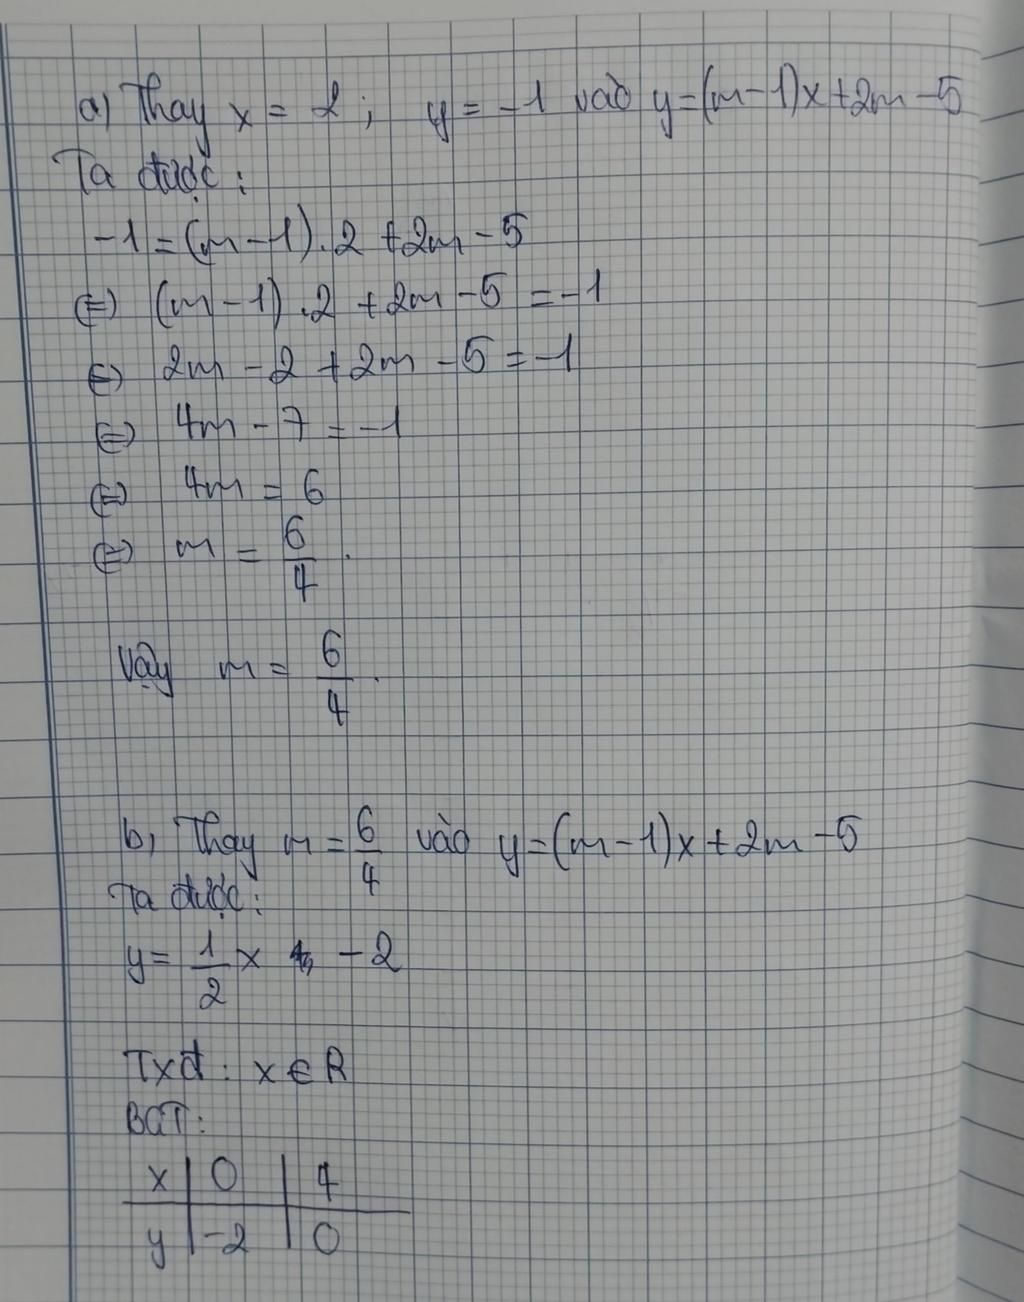 a) Thay x = 2; y = -1 vào y=(m-1)x+2m-5
Ta được:
-1=(m-1).2 +2m-5
(=) (m-1).2 +2m-5 =-1
(=) 2m-2+2m-5=-1
(=) 4m-7=-1
(=) 4m = 6
(=) m = 6/4.
Vậy m = 6/4.
b, Thay m = 6/4 vào y=(m-1)x+2m-5
Ta được:
y= 1/2 x -2
Txđ: x∈R
BGT:
x | 0 | 4
y | -2 | 0